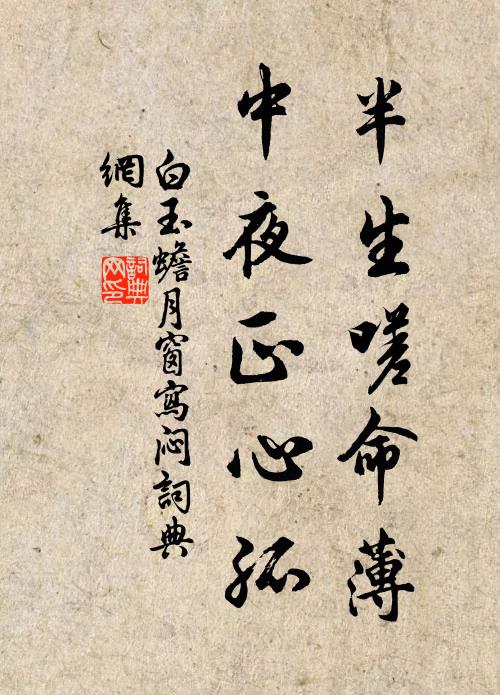 半生嗟命薄
中夜正心孤
白玉蟾月窗寫悶詞典
網集
詞典
网印